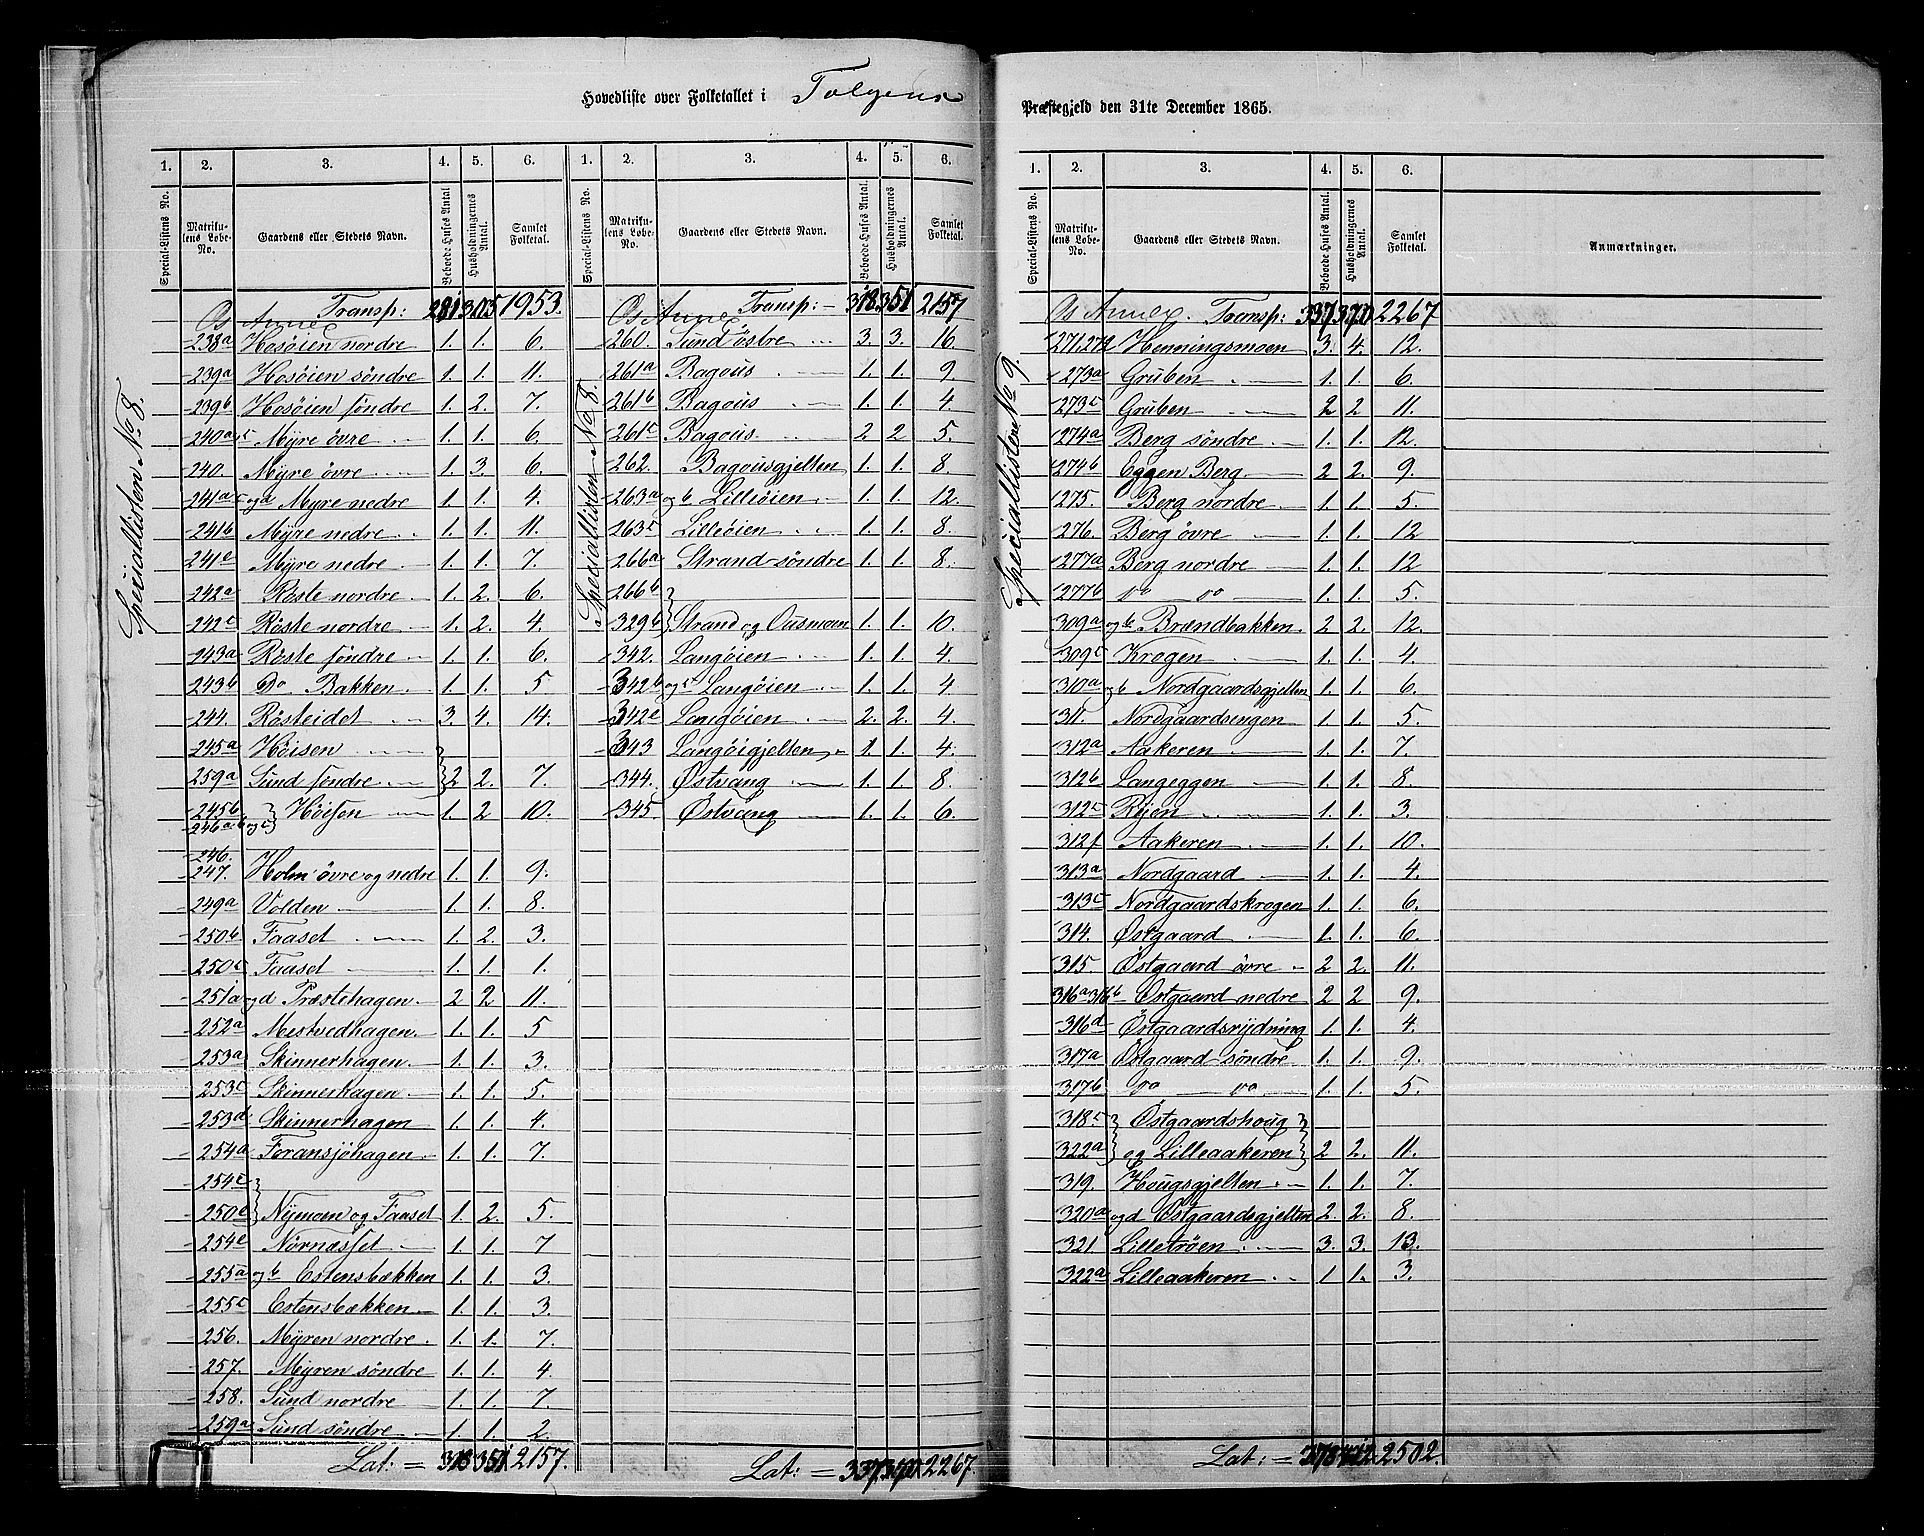 Hovedliste over Folketallet i Tolgens
1. 2. 3. 4. 5. 6. 1. 2. 3. 4. 5. 6.
Special-Listens No. Matrikulens Løbe-No. Gaardens eller Stedets Navn. Beboede Huses Antal. Husholdningernes Antal. Samlet Folketal. Special-Listens No. Matrikulens Løbe-No. Gaardens eller Stedets Navn. Beboede Huses Antal. Husholdningernes Antal. Samlet Folketal.
Speciallisten No. 8.
Os Annex Transp: 281 305 1953.
238a Hosøien nordre 1. 1. 6.
239a Hosøien søndre 1. 1. 11.
239b Hosøien søndre 1. 2. 7.
240a c Myre øvre 1. 1. 6.
240. Myre øvre 1. 3. 6.
241a c og d Myre nedre 1. 1. 4.
241b Myre nedre 1. 1. 11.
241e Myre nedre 1. 1. 7.
242a Røste nordre 1. 2. 6.
242c Røste nordre 1. 2. 4.
243a Røste søndre 1. 1. 6.
243b Do Bakken 1. 1. 5
244. Røsteidet 3. 4. 14.
245a Høisen
259a Sund søndre } 2 2. 7.
245b } Høisen 1. 2 10.
246a b og c
246.
247. Holm øvre og nedre 1. 1. 9.
249a Volden 1. 1. 8.
250b Faaset 1. 2. 3.
250c Faaset 1. 1. 1.
251a og d Præstehagen 2 2 11.
252a Mestvedhagen 1. 1. 5
253a Skinnerhagen 1. 1. 3.
253c Skinnerhagen 1. 1. 5.
253d Skinnerhagen 1. 1. 4.
254a Foransjøhagen 1. 1. 7.
254c
250e } Nymoen og Faaset 1. 2. 5.
254e Nørnæsset 1. 1. 7
255a og b Estensbækken 1. 1. 3.
255c Estensbækken 1. 1. 3.
256. Myren nordre 1. 1. 7.
257. Myren søndre 1. 1. 4
258. Sund nordre 1. 1. 7.
259a Sund søndre 1. 1. 2.
Lat: = 318 351 2157.
Speciallisten No 8.
Os Annex Transp: 318. 351 2157
260. Sund østre 3. 3. 16.
261a Bagous 1. 1. 9
261b Bagous 1. 1. 4.
261c Bagous 2 2 5.
262. Bagousgjelten 1. 1. 8.
263a og b Lilleøien 1. 1. 12.
263c Lilleøien 1. 1. 8.
266a Strand søndre 1. 1. 8.
266b
329b } Strand og Ousmoen 1. 1. 10.
342. Langøien 1. 1. 4.
342b og c Langøien 1. 1. 4
342e Langøien 2. 2. 4.
343 Langøigjelten 1. 1. 4
344. Østvang 1. 1. 8.
345 Østvang 1. 1. 6.
Lat: = 337 370 2267.
Præstegjeld den 31te December 1865.
1. 2. 3. 4. 5. 6.
Special-Listens No. Matrikulens Løbe-No. Gaardens eller Stedets Navn. Beboede Huses Antal. Husholdningernes Antal. Samlet Folketal. Anmærkninger.
Speciallisten No 9.
Os Annex. Transp: 337 370 2267
271 272 Henningsmoen 3. 4. 12.
273a Gruben 1. 1. 6.
273c Gruben 2 2 11.
274a Berg søndre 1. 1. 12.
274b Eggen Berg 2 2. 9.
275. Berg nordre 1. 1. 5
276. Berg øvre 1. 1. 12
277a Berg nordre 1. 1. 12
277b do do 1. 1. 5.
309a og b Brændbakken 2 2. 12.
309c Krogen 1. 1. 4.
310a og b Nordgaardsgjelten 1. 1. 6.
311. Nordgaardsengen 1. 1. 5.
312a Aakeren 1. 1. 7
312b Langeggen 1. 1. 8.
312c Ryen 1. 1. 3.
312f Aakeren 1. 1. 10.
313a Nordgaard 1. 1. 4.
313c Nordgaardskrogen 1. 1. 6.
314. Østgaard 1. 1. 6.
315 Østgaard øvre 2 2. 11.
316a 316b Østgaard nedre 2 2 9.
316d Østgaardsrydning 1. 1. 4.
317a Østgaard søndre 1. 1. 9.
317b do do 1. 1. 5
318c } Østgaardshoug }
322a } og Lilleaakeren } 2 2. 11.
319. Hougsgjelten 1. 1. 7.
320a og d Østgaardsgjelten 2. 2. 8.
321 Lilletrøen 3. 3. 13.
322a Lilleaakeren 1 1. 3.
Lat: = 378 412 2502.